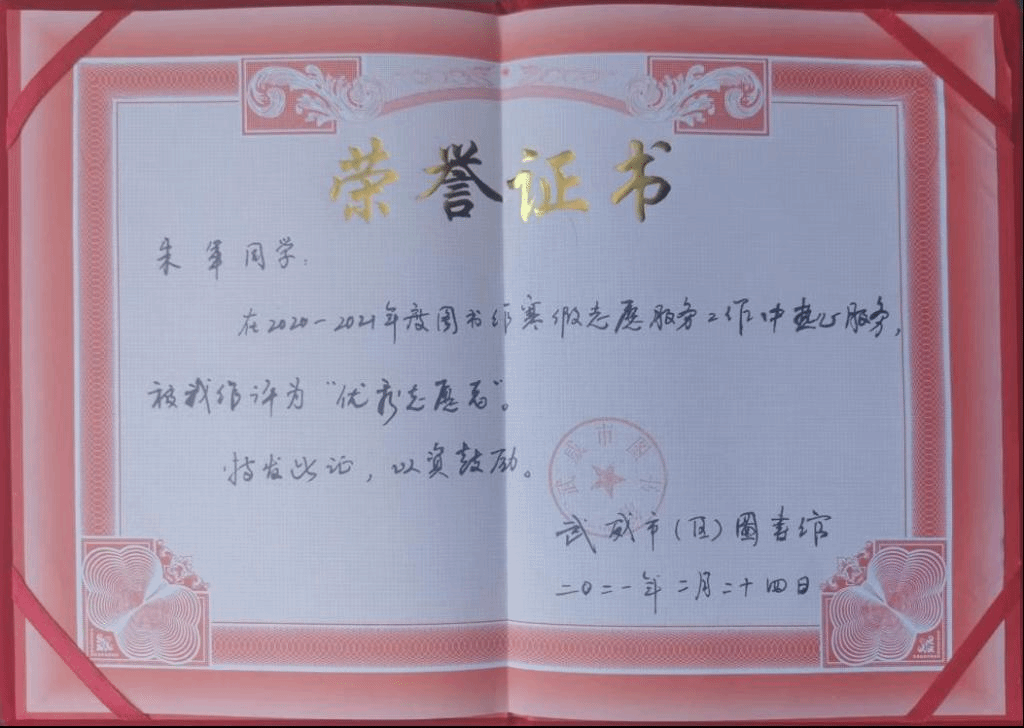 荣誉证书
朱军同学：
在2020-2021年度图书馆寒假志愿服务工作中热心服务，
被我馆评为“优秀志愿者”。
特发此证，以资鼓励。
武威市图书
武威市(区)圖書馆
二〇二一年二月二十四日